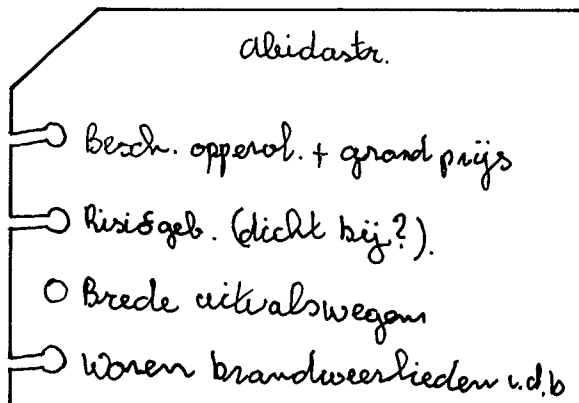 Abidastr.
Besch. oppervl. + grondprijs
Risicogeb. (dicht bij?).
Brede uitvalswegen
Wonen brandweerlieden i.d.b